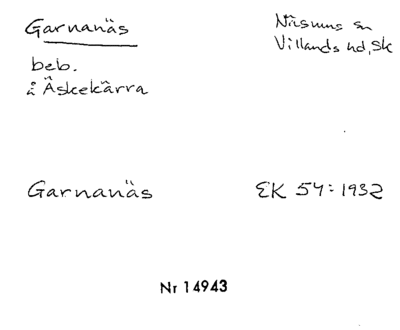 Garnanäs
Näsums sn
Villands hd, Sk
beb.
å Äskekärra
Garnanäs
EK 54:1932
Nr 14943